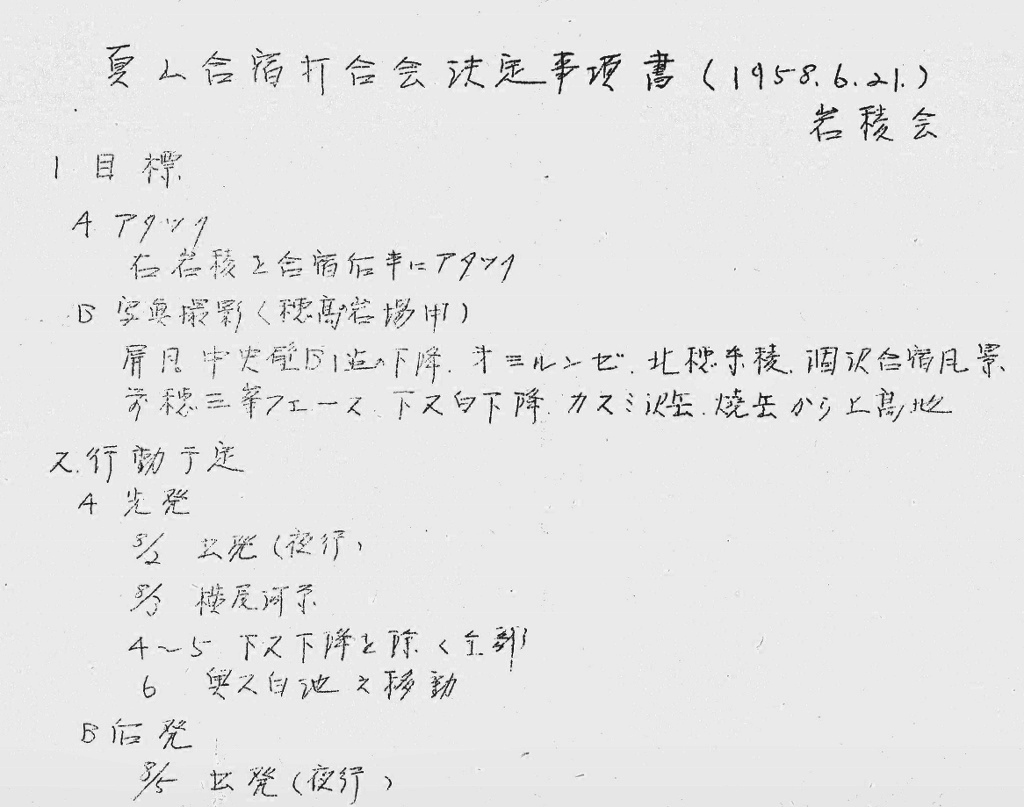 夏山合宿打合会決定事項書(1958.6.21.)
岩稜会
1 目標
A アタック
右岩稜を合宿后半にアタック
B 写真撮影(穂高岩場用)
屏風中央壁B1迄の下降. 才三ルンゼ. 北穂東稜. 涸沢合宿風景
前穂三峯フェース 下又白下降. カスミ沢岳. 焼岳から上高地
2.行動予定
A 先発
8/2 出発(夜行)
8/3 横尾河原
4〜5 下又下降を除く全部
6 奥又白池え移動
B 后発
8/5 出発(夜行)